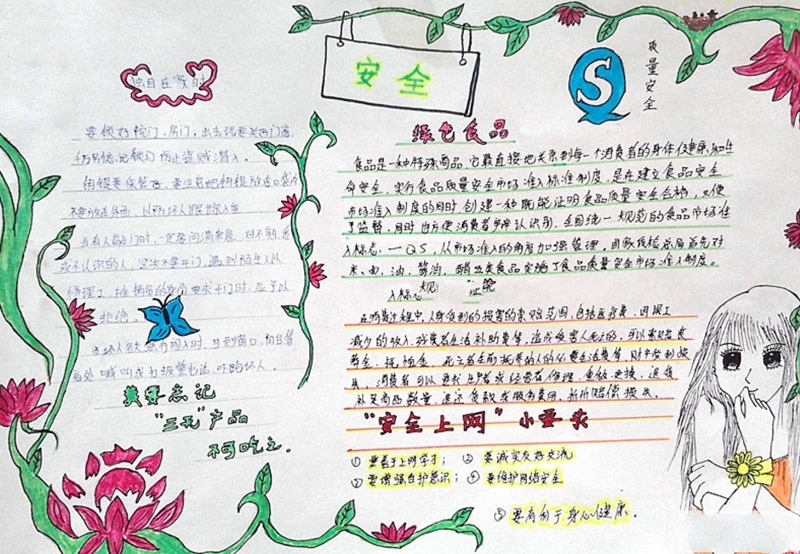 安全
S
质量安全
独自在家时
要锁好院门、房门,出去玩要关好门窗,
防止盗贼潜入。
钥匙要保管好,
不要放在外面,以防坏人跟踪入室
当有人敲门时,一定要问清来意,对不熟悉
或不认识的人,坚决不要开门,遇到陌生人以
修理工、推销员的身份要求开门时,应予以
拒绝。
喊叫或打报警电话,吓跑坏人.
莫要忘记
“三无”产品
不可吃之.
绿色食品
食品是一种特殊商品,它最直接地关系到每一个消费者的身体健康和生
命安全,实行食品质量安全市场准入标准制度,是在建立食品安全
市场准入制度的同时,创建一种既能证明食品质量安全合格,又便
于监督,同时也方便消费者辨认识别,全国统一规范的食品市场准
入标志.—QS,从市场准入的角度加强管理,国家质检总局首先对
米、面、油、酱油、醋五类食品实施了食品质量安全市场准入制度。
在消费过程中,人身受到的损害的索赔范围,包括医疗费、因误工
减少的收入,残废者生活补助费等,造成受害人死亡的,可以索赔丧
葬金、抚恤金、死亡者生前抚养的人的必要生活费等,财产受到损
失,消费者可以要求生产者或经营者修理、重做、更换、退货
补足商品数量、退还货款或服务费用、折价赔偿损失.
“安全上网”小要求
①要善于上网学习;②要诚实友好交流
③要增强自护意识;④要维护网络安全
⑤要有利于身心健康.